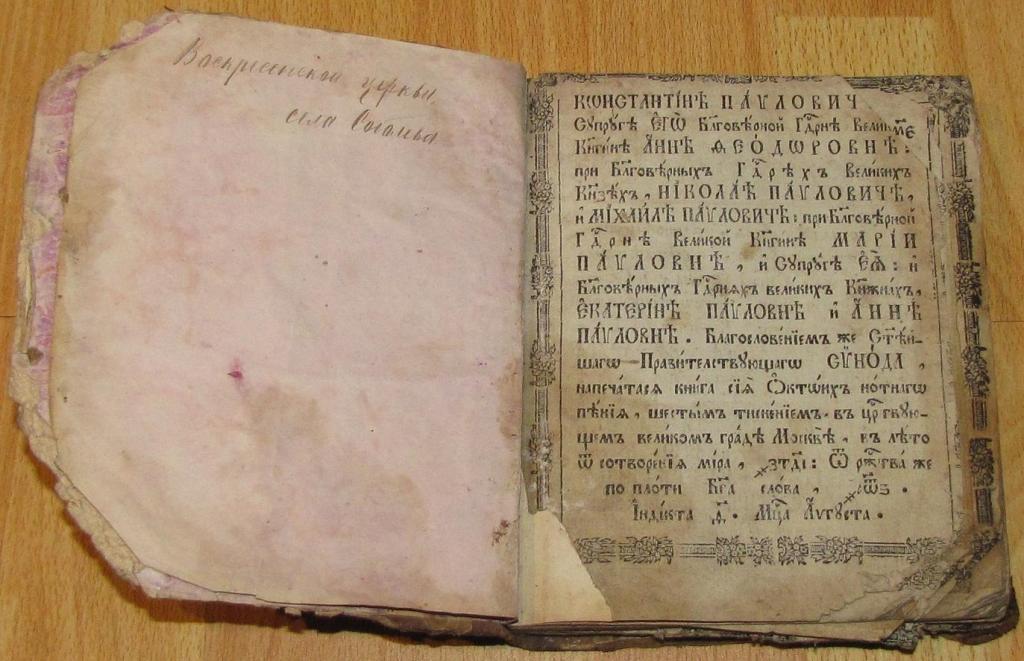 Воскресенской церкви
села
КѠНСТАНТІ́НѢ ПА́ѴЛОВИЧ
Сꙋпрꙋ́гѣ Є҆гѡ̀ Бл҃говѣ́рной Гдⷭ҇рнѣ Вели́
Кнѧги́нѣ А҆́ННѢ Ѳ҆ЕО́ДѠРОВНѢ:
при Бл҃говѣ́рныхъ Гдⷭ҇рѣхъ Вели́кихъ
Кнѧзѣ́хъ, НІКОЛА́Ѣ ПА́ѴЛОВИЧѢ,
и҆ МІХАИ́ЛѢ ПА́ѴЛОВИЧѢ: при Бл҃говѣ́рной
Гдⷭ҇рнѣ Вели́кой Кнѧги́нѣ МАРІ́И
ПА́ѴЛОВНѢ, и҆ Сꙋпрꙋ́гѣ Є҆ѧ̀: и҆
Бл҃говѣ́рныхъ Гдⷭ҇рнѧхъ вели́кихъ Кнѧжна́хъ,
Є҆КАТЕРІ́НѢ ПА́ѴЛОВНѢ и҆ А҆́ННѢ
ПА́ѴЛОВНѢ. Благослове́нїемъ же Ст҃ѣ́й-
шагѡ Прави́телствꙋющагѡ СѴНО́ДА,
напеча́тасѧ кни́га сїѧ̀ О҆ктѡ́ихъ но́тнагѡ
пѣ́нїѧ, шесты́мъ тисне́нїемъ. въ ца́рствꙋю-
щемъ вели́комъ гра́дѣ Москвѣ̀, въ лѣ́то
ѿ сотворе́нїѧ мі́ра, ҂зтді: Ѿ ржⷭ҇тва̀ же
по пло́ти Бг҃а сло́ва, ҂аѡ
І҆ндї́кта д҃. Мцⷭ҇а А҆́ѵгꙋста.